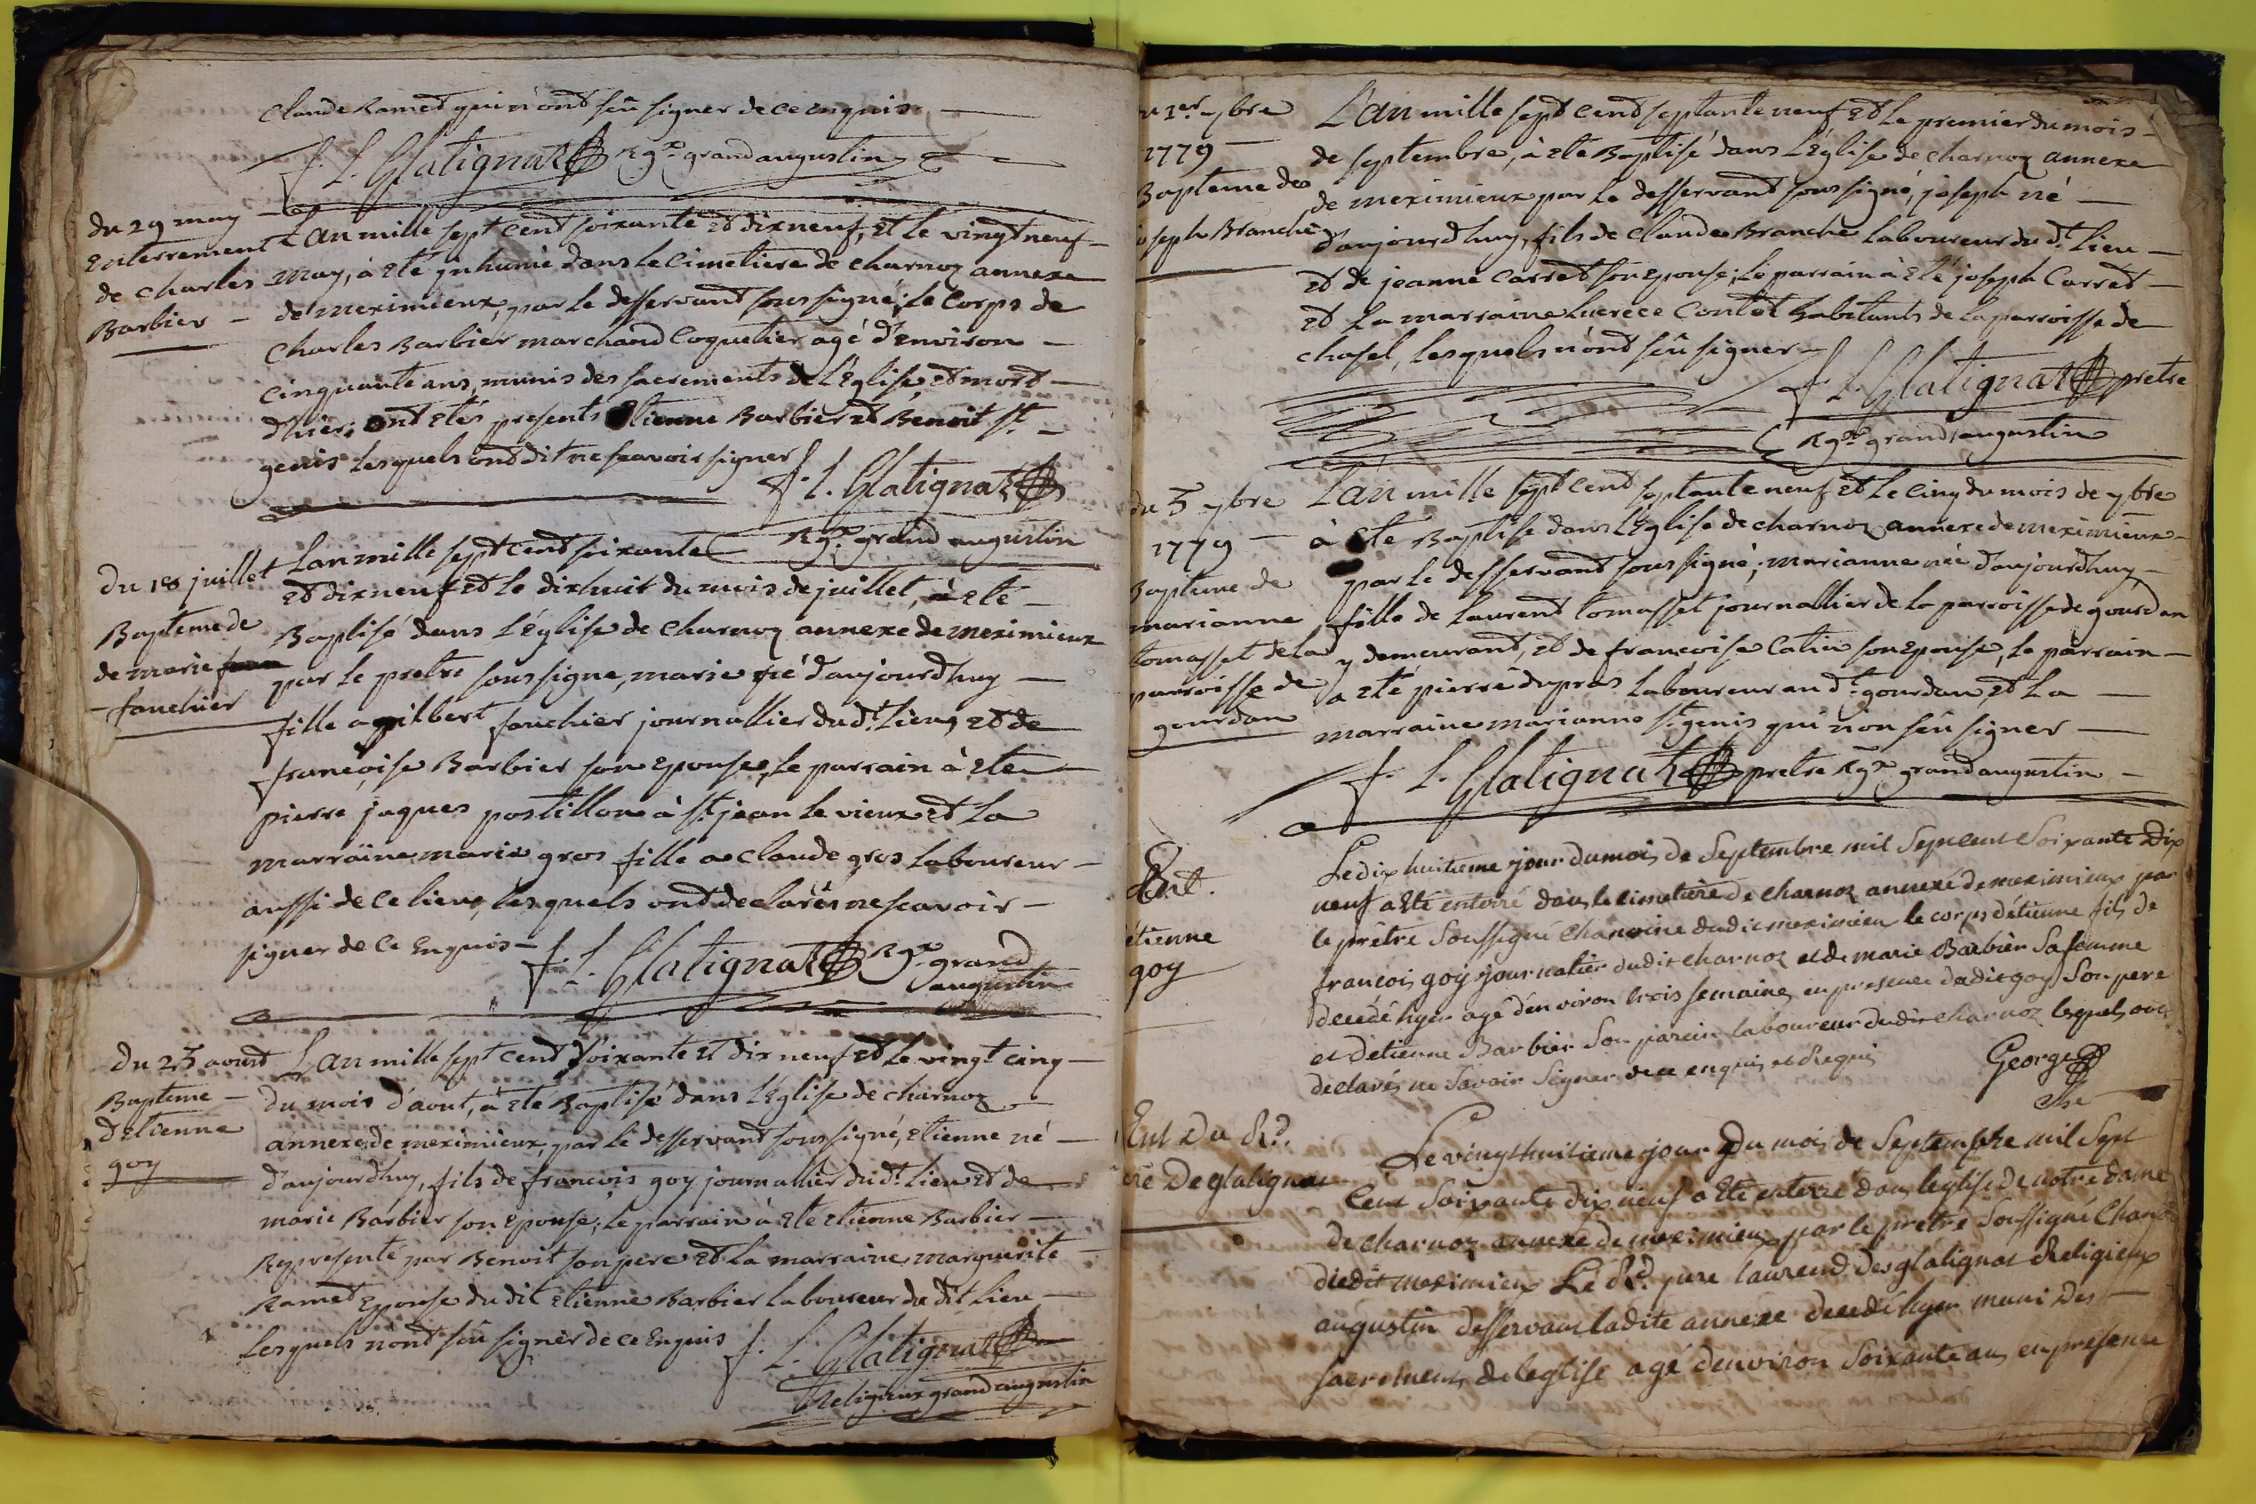 Claude Ramet qui n'ont sçu signer de ce enquis
f. L. Glatignat Rgx grand augustin
du 29 may
Enterrement
de Charles
Barbier
L'an mille sept cent soixante et dix neuf, et le vingt neuf
may, à eté inhumé dans le Cimetiere de charnoz annexe
de meximieux, par le desservant soussigné, le Corps de
Charles Barbier marchand Coquetier agé d'environ
cinquante ans, munis des sacrements de l'Eglise, et mort
d'hier, ont etés presents Etienne Barbier et Benoit st.
genis lesquels ont dit ne scavoir signer
f. L. Glatignat
Rgx grand augustin
du 18 juillet
Bapteme de
de marie
fouchier
L'an mille sept cent soixante
et dix neuf et le dixhuit du mois de juillet, à eté
Baptisé dans l'église de Charnoz annexe de meximieux
par le pretre soussigne, marie né d'aujourdhuy
fille a gilbert fouchier journallier du dt. lieu, et de
francoise Barbier son epouse, le parrain à ete
pierre jaques postillon à st. jean le vieux et la
marraine marie gros fille a Claude gros laboureur
aussi de ce lieu, lesquels ont declarés ne scavoir
signer de ce Enquis
f. L. Glatignat Rgx grand
augustin
du 25 aoust
Bapteme
d'Etienne
goy
L'an mille sept cent soixante et dix neuf et le vingt cinq
du mois d'aout, à ete Baptisé dans l'église de charnoz
annexe de meximieux, par le desservant soussigné, etienne né
d'aujourdhuy, fils de francois goy journallier du dt. lieu et de
marie Barbier son epouse; le parrain à ete etienne Barbier
Representé par Benoit son pere et la marraine marguerite
Ramet Epouse du dit etienne Barbier laboureur du dit lieu
lesquels n'ont sçu signer de ce Enquis f. L. Glatignat
Religieux grand augustin
du 1er 7bre
1779
Bapteme de
joseph Branche
L'an mille sept cent septante neuf et le premier du mois
de septembre, à ete Baptisé dans l'Église de charnoz annexe
de meximieux par le desservant soussigné, joseph né
d'aujourdhuy, fils de Claude Branche laboureur du dt. lieu
et de jeanne Carret son epouse; le parrain à eté joseph Carret
et la marraine lucrece Contet habitants de la parroisse de
chasel, lesquels n'ont sçu signer
f. L. Glatignat pretre
Rgx grand augustin
du 5 7bre
1779
Bapteme de
marianne
tomasset de la
parroisse de
gourdan
L'an mille sept cent septante neuf et le cinq du mois de 7bre
à ete Baptisé dans l'Eglise de charnoz annexe de meximieux
par le desservant soussigné, marianne née d'aujourdhuy
fille de Laurent tomasset journallier de la parroisse de gourdan
y demeurant, et de francoise Catin son epouse, le parrain
a eté pierre dupras laboureur au dt. gourdan, et la
marraine marianne st. genis qui non sçu signer
f. L. Glatignat pretre Rgx grand augustin
Ent.
étienne
goy
Le dix huitieme jour du mois de Septembre mil Sept cent Soixante dix
neuf a eté enterré dans le cimetière de charnoz annexe de meximieux par
le prêtre Soussigné Chanoine dudit meximieu le corps d'étienne fils de
francois goy journalier dudit charnoz et de marie Barbier Sa femme
decedé hyer agé d'environ trois semaines en presence dudit goy Son pere
et d'etienne Barbier Son parein laboureur dudit charnoz lesquels ont
declarés ne Savoir Signer de ce enquis et Requis
George
che
Ent du Rd.
De glatignat
Le vingt huitieme jour du mois de Septembre mil Sept
Cent Soixante dix neuf a ete enterré dans leglise de notre dame
de charnoz annexe de meximieux par le prêtre Soussigné Chan
dudit meximieux Le Rd. pere laurend des glatignat Religieux
augustin desservant ladite annexe decedé hyer muni des
sacremens de leglise agé d'environ Soixante ans en presence